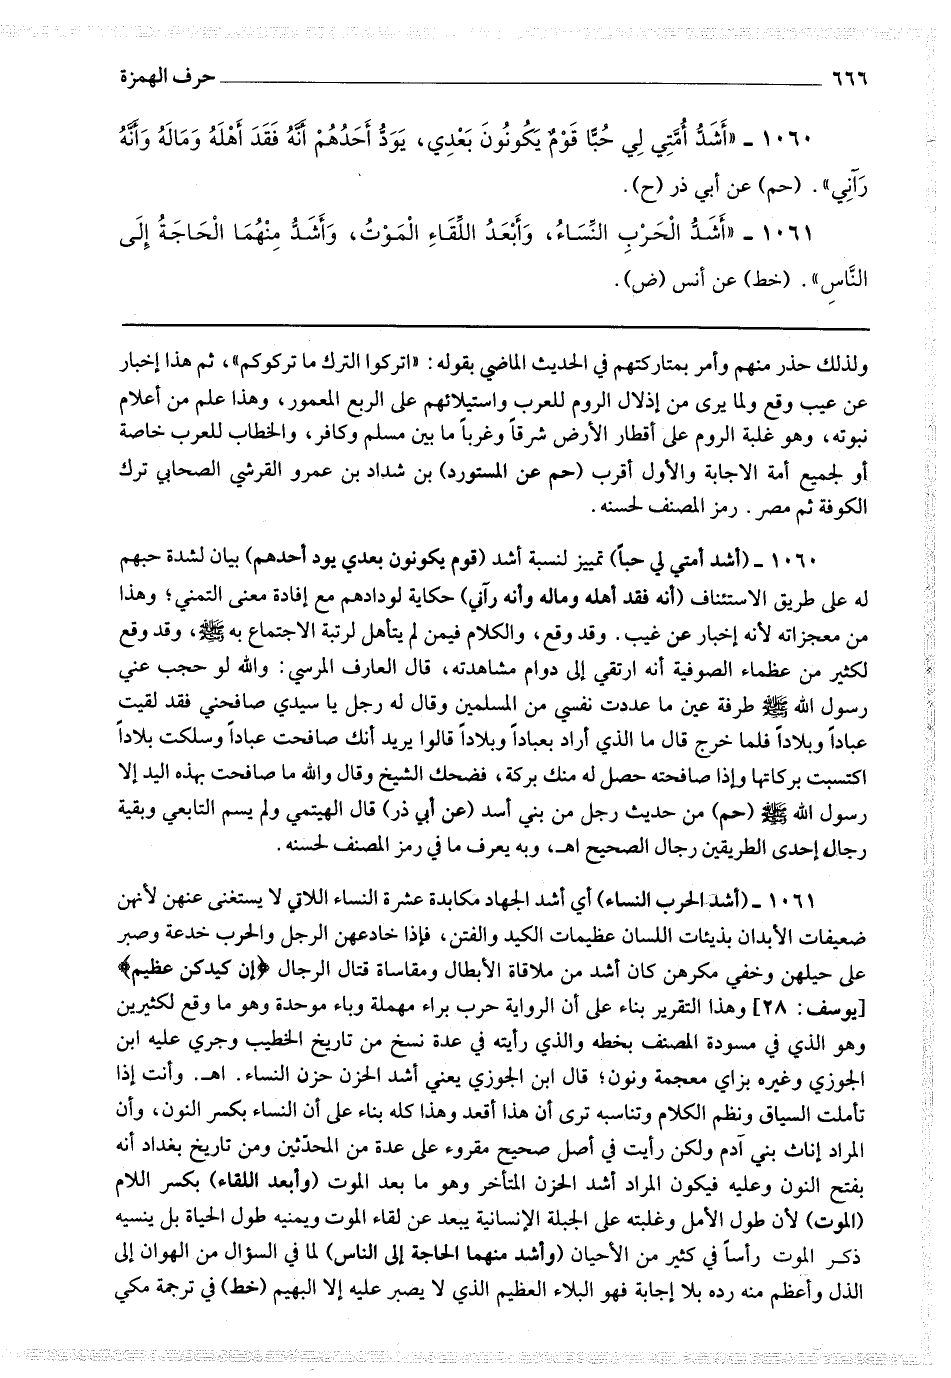 ٦٦٦ ــــــ حرف الهمزة
١٠٦٠ ـ «أَشَدُّ أُمَّتِي لِي حُبًّا قَوْمٌ يَكُونُونَ بَعْدِي، يَوَدُّ أَحَدُهُمْ أَنَّهُ فَقَدَ أَهْلَهُ وَمَالَهُ وَأَنَّهُ
رَآنِي». (حم) عن أبي ذر (ح).
١٠٦١ ـ «أَشَدُّ الْحَرْبِ النِّسَاءُ، وَأَبْعَدُ اللِّقَاءِ الْمَوْتُ، وَأَشَدُّ مِنْهُمَا الْحَاجَةُ إِلَى
النَّاسِ». (خط) عن أنس (ض).
ولذلك حذر منهم وأمر بمتاركتهم في الحديث الماضي بقوله: «اتركوا الترك ما تركوكم»، ثم هذا إخبار
عن عيب وقع ولما يرى من إذلال الروم للعرب واستيلائهم على الربع المعمور، وهذا علم من أعلام
نبوته، وهو غلبة الروم على أقطار الأرض شرقاً وغرباً ما بين مسلم وكافر، والخطاب للعرب خاصة
أو لجميع أمة الاجابة والأول أقرب (حم عن المستورد) بن شداد بن عمرو القرشي الصحابي ترك
الكوفة ثم مصر. رمز المصنف لحسنه.
١٠٦٠ ـ (أشد أمتي لي حباً) تمييز لنسبة أشد (قوم يكونون بعدي يود أحدهم) بيان لشدة حبهم
له على طريق الاستئناف (أنه فقد أهله وماله وأنه رآني) حكاية لودادهم مع إفادة معنى التمني؛ وهذا
من معجزاته لأنه إخبار عن غيب. وقد وقع، والكلام فيمن لم يتأهل لرتبة الاجتماع به ﷺ، وقد وقع
لكثير من عظماء الصوفية أنه ارتقي إلى دوام مشاهدته، قال العارف المرسي: والله لو حجب عني
رسول الله ﷺ طرفة عين ما عددت نفسي من المسلمين وقال له رجل يا سيدي صافحني فقد لقيت
عباداً وبلاداً فلما خرج قال ما الذي أراد بعباداً وبلاداً قالوا يريد أنك صافحت عباداً وسلكت بلاداً
اكتسبت بركاتها وإذا صافحته حصل له منك بركة، فضحك الشيخ وقال والله ما صافحت بهذه اليد إلا
رسول الله ﷺ (حم) من حديث رجل من بني أسد (عن أبي ذر) قال الهيتمي ولم يسم التابعي وبقية
رجال إحدى الطريقين رجال الصحيح اهـ، وبه يعرف ما في رمز المصنف لحسنه.
١٠٦١ ـ (أشد الحرب النساء) أي أشد الجهاد مكابدة عشرة النساء اللاتي لا يستغنى عنهن لأنهن
ضعيفات الأبدان بذيئات اللسان عظيمات الكيد والفتن، فإذا خادعهن الرجل والحرب خدعة وصبر
على حيلهن وخفي مكرهن كان أشد من ملاقاة الأبطال ومقاساة قتال الرجال ﴿إن كيدكن عظيم﴾
[يوسف: ٢٨] وهذا التقرير بناء على أن الرواية حرب براء مهملة وباء موحدة وهو ما وقع لكثيرين
وهو الذي في مسودة المصنف بخطه والذي رأيته في عدة نسخ من تاريخ الخطيب وجري عليه ابن
الجوزي وغيره بزاي معجمة ونون؛ قال ابن الجوزي يعني أشد الحزن حزن النساء. اهـ. وأنت إذا
تأملت السياق ونظم الكلام وتناسبه ترى أن هذا أقعد وهذا كله بناء على أن النساء بكسر النون، وأن
المراد إناث بني آدم ولكن رأيت في أصل صحيح مقروء على عدة من المحدّثين ومن تاريخ بغداد أنه
بفتح النون وعليه فيكون المراد أشد الحزن المتأخر وهو ما بعد الموت (وأبعد اللقاء) بكسر اللام
(الموت) لأن طول الأمل وغلبته على الجبلة الإنسانية يبعد عن لقاء الموت ويمنيه طول الحياة بل ينسيه
ذكر الموت رأساً في كثير من الأحيان (وأشد منهما الحاجة إلى الناس) لما في السؤال من الهوان إلى
الذل وأعظم منه رده بلا إجابة فهو البلاء العظيم الذي لا يصبر عليه إلا البهيم (خط) في ترجمة مكي